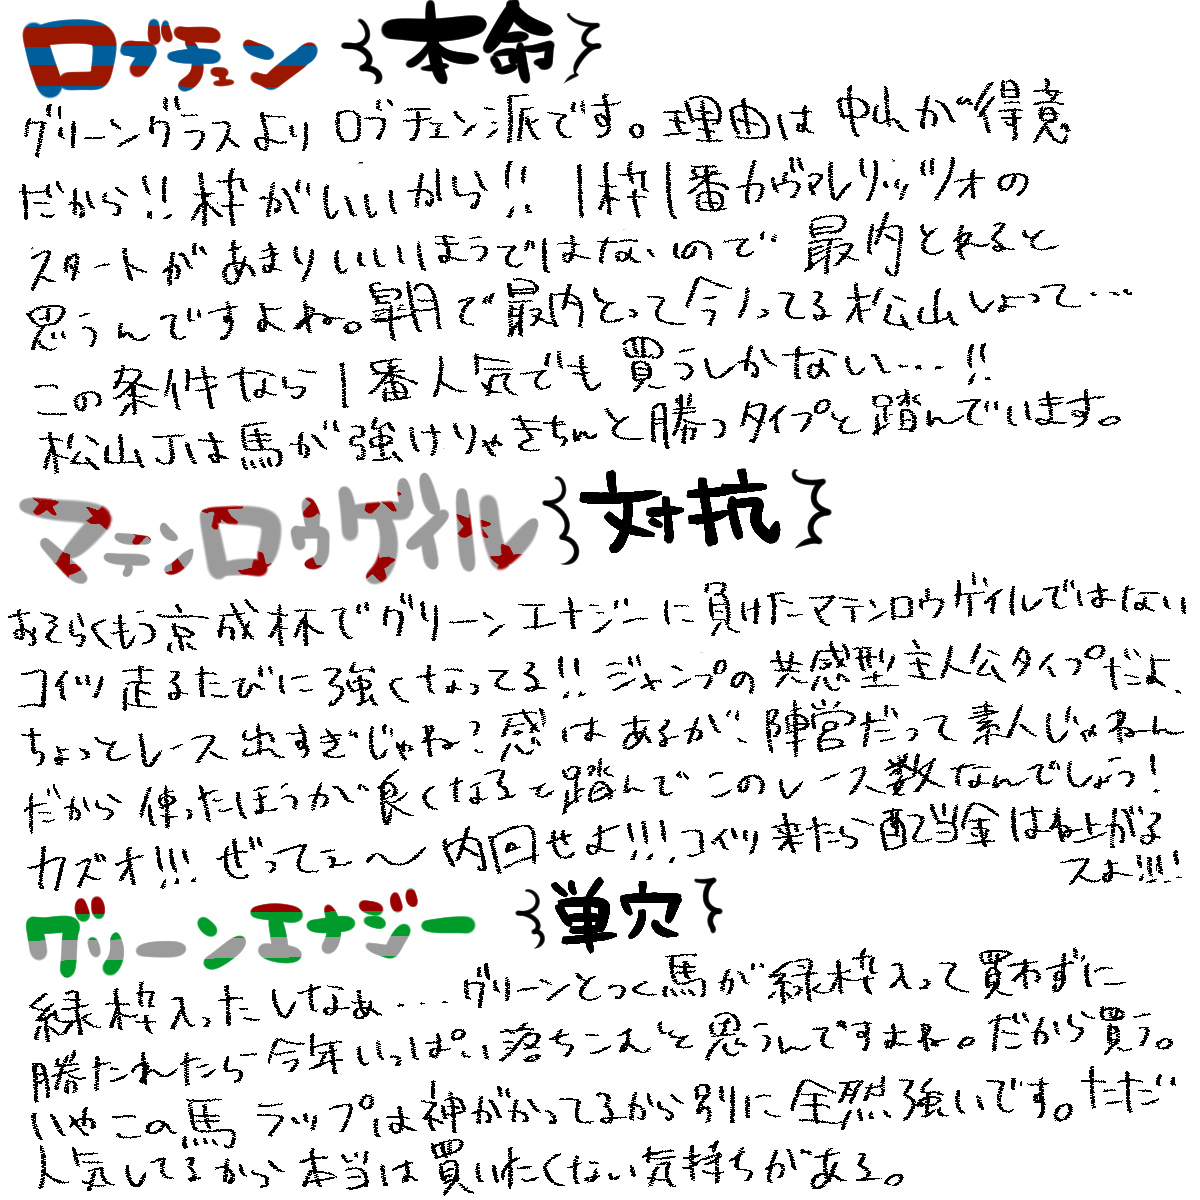 ロブチェン 本命
グリーングラスより ロブチェン派です。理由は 中山が得意
だから!! 枠がいいから!! 1枠1番カヴァレリッツォの
スタートがあまりいいほうではないので 最内とれると
思うんですよね。皐月で最内とって今ノってる松山しょって…
この条件なら1番人気でも買うしかない…!!
松山Jは馬が強けりゃきちんと勝つタイプと踏んでいます。
マテンロウゲイル 対抗
おそらくもう京成杯でグリーンエナジーに負けたマテンロウゲイルではない
コイツ走るたびに強くなってる!! ジャンプの共感型主人公タイプだよ、
ちょっとレース出すぎじゃね?感はあるが、陣営だって素人じゃねーん
だから使ったほうが良くなると踏んでこのレース数なんでしょう!
カズオ!!! ぜってェ〜内回せよ!!! コイツ来たら配当金はね上がる
スよ!!!!
グリーンエナジー 単穴
緑枠入ったしなぁ… グリーンとつく馬が緑枠入って買わずに
勝たれたら今年いっぱい落ちこむと思うんですよね。だから買う。
いやこの馬ラップは神がかってるから別に全然強いです。ただ
人気してるから本当は買いたくない気持ちがある。